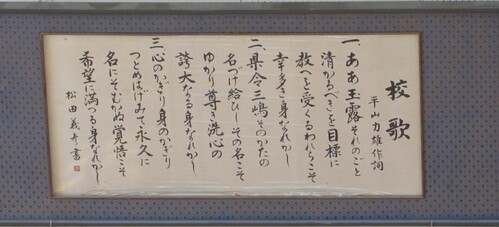 校歌
平山力雄作詞
一、ああ玉露それのごと
清かるべきを目標に
教へを受くるわれらこそ
幸多き身なれかし
二、県令三嶋そのかたの
名づけ給ひしその名こそ
ゆかり尊き洗心の
誇大なる身なれかし
三、心のかぎり身のかぎり
つとめはげみて永久に
名にそむかぬ覚悟こそ
希望に満つる身なれかし
松田義
書